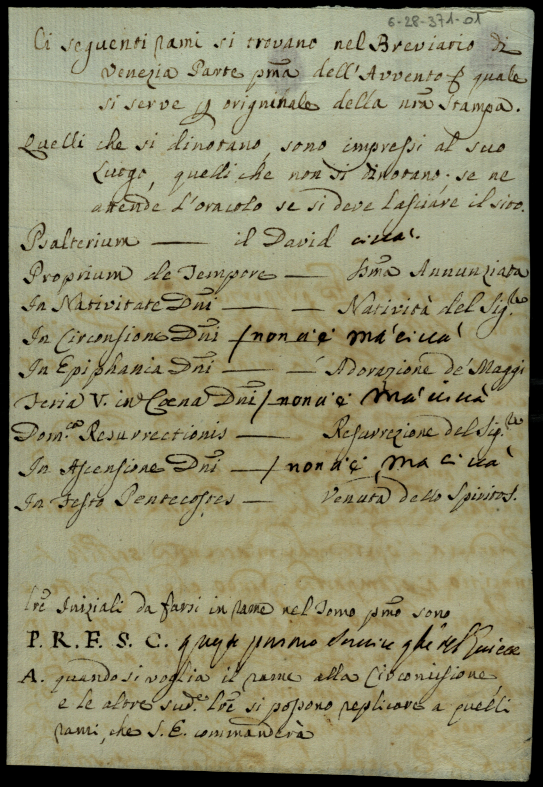 6-28-371-01
Ci seguenti rami si trovano nel Breviario di
Venezia Parte pma dell'Avvento quale
si serve originale della nra Stampa.
Quelli che si dinotano, sono impressi al suo
Luogo, quelli che non si dinotano. se ne
attende l'oracolo se si deve lasciare il sito.
Psalterium — il David ci va'.
Proprium de Tempore — Sma Annunziata
In Nativitate Dni — Natività del Sigre
In Circonsione Dni — / non c'è ma' ci va'
In Epiphania Dni — Adorazione de' Maggi
Feria V. in Coena Dni / non c'è ma' ci va'
Domca Resurrectionis — Resurrezione del Sigre
In Ascensione Dni — / non c'è, ma ci va'
In Festo Pentecostes — Venuta dello Spirito S.
Lre Iniziali da farsi in rame nel Tomo pmo sono
P. R. F. S. C. queste
A. quando si voglia il rame alla Circoncisione
e le altre sude Lre si possono replicare a quelli
rami, che S. E. commanderà